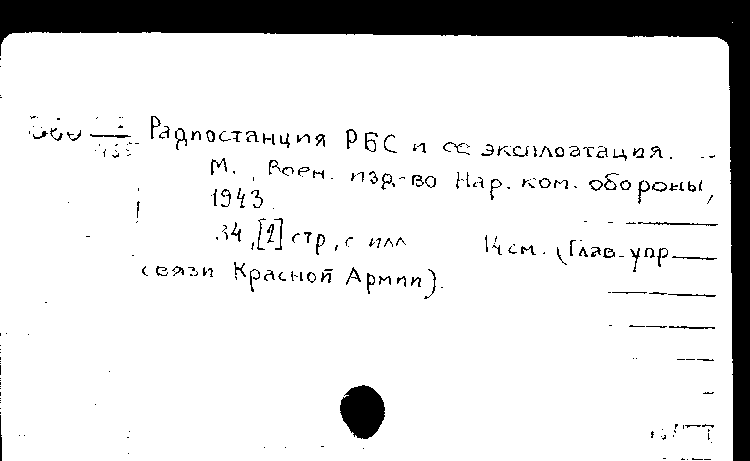 Радиостанция РБС и ее эксплоатация.
М., Воен. изд-во Нар. ком. обороны,
1943.
34, [2] стр, с илл 14 см. (Глав. упр
связи Красной Армии).